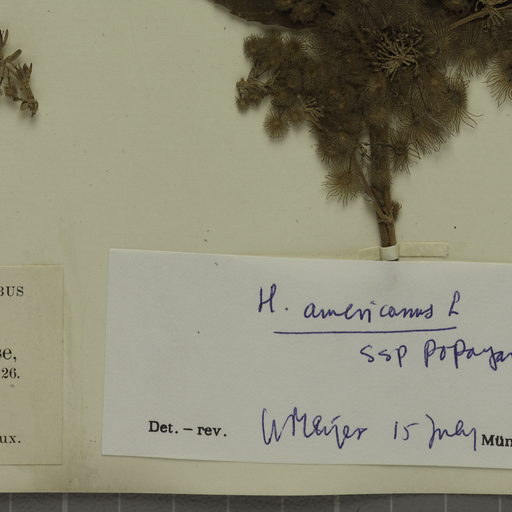 BUS
H. americanus L
ssp popayan
se,
26.
Det. – rev. W Meijer 15 July Mün
ux.